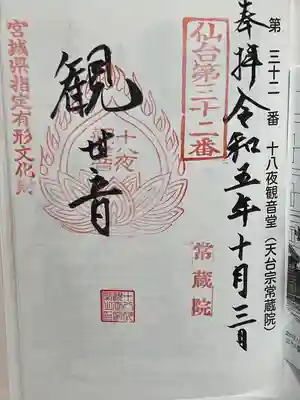 第三十二番 十八夜観音堂(天台宗常蔵院)
奉拝 令和五年十月三日
仙台第三十二番
観世音
十八夜
観音
常蔵院
宮城県指定有形文化財